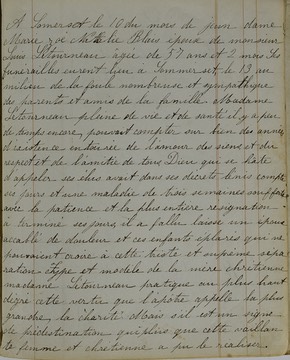 A Somerset le 10 du mois de juin dame
Marie Zoé Blais épouse de monsieur
Louis Létourneau âgée de 57 ans et 2 mois Les
funerailles eurent lieu à Sommerset le 13 au
milieu de la foule nombreuse et sympathique
des parents et amis de la famille Madame
Létourneau pleine de vie et de santé il y a peu
de temps encore, pouvait compter sur bien des années
d'existence entourée de l'amour des siens et du
respect et de l'amitié de tous Dieu qui se hate
d'appeler ses élus avait dans ses decrets
ses jours et une maladie de trois semaines
avec la patience et la plus entière resignation
a terminé ses jours il a fallu laisse un époux
accablé de douleur et ces enfants éplorés qui ne
pouvaient croire à cette triste et suprême sépa
ration type et modele de la mère chretienne
madame Létourneau pratiqua au plus haut
degre cette vertu que l'apôtre appelle la plus
grande, la charité Mais s'il est un signe
de prédestination qui plus que cette vaillan
te femme et chretienne a pu le realiser.